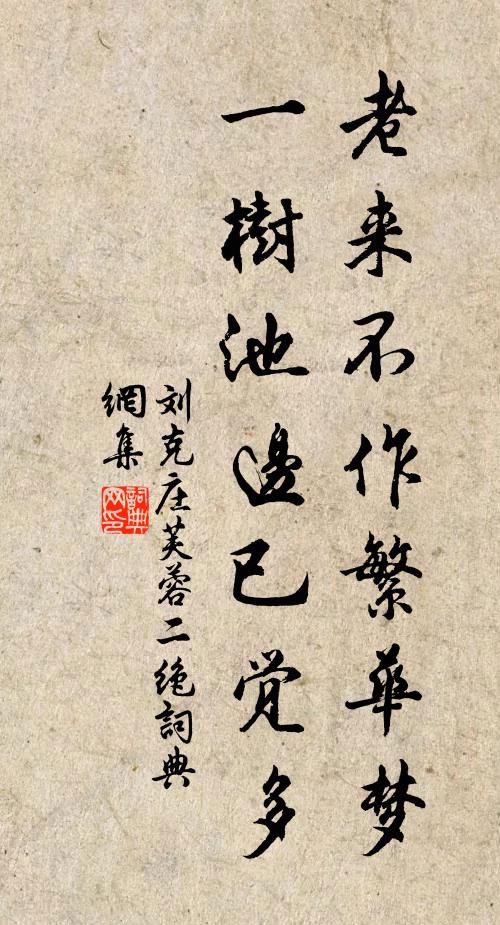 老来不作繁華梦
一樹池邊已觉多
刘克庄芙蓉二绝詞典
網集
詞典网印